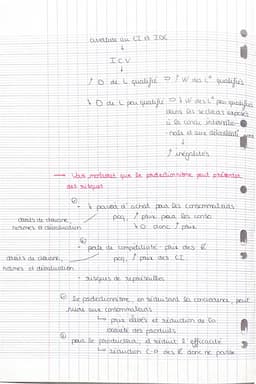 ouverture au CI et IDE
↓
ICV
↓
↑ D de L qualifié ⇒ ↑ W des L^s qualifiés
↓ D de L peu qualifié ⇒ ↓ W des L^s peu qualifiés
dans les secteurs exposés
à la conc internatio-
nale et aux délocalisat°
↓
↑ inégalités
→ Vous montrerez que le protectionnisme peut présenter
des risques
droits de douane,
normes et dévaluation
- ↓ pouvoir d'achat pour les consommateurs
pcq, ↑ prix pour les conso
↳ donc ↑ prix
droits de douane,
normes et dévaluation
- perte de compétitivité-prix des E
pcq, ↑ prix des CI
- risques de représailles
Le protectionnisme, en réduisant la concurrence, peut
nuire aux consommateurs
↳ prix élevés et réduction de la
des produits
pour le producteur, il réduit l'efficacité
↳ réduction C-P des E donc